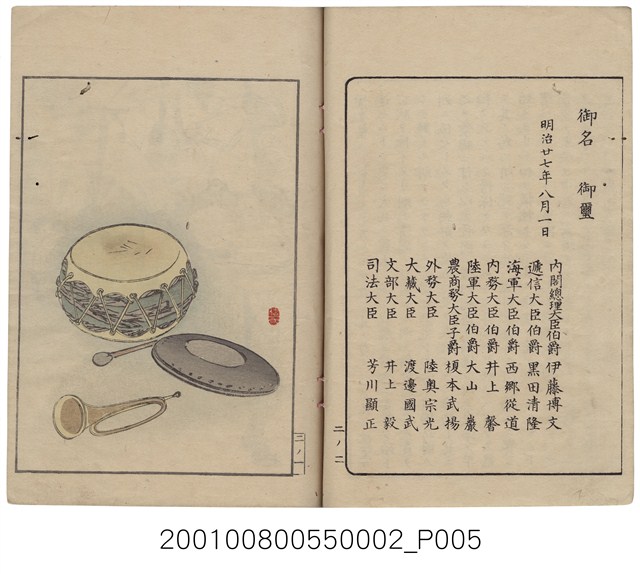 御名　御璽
明治廿七年八月一日
内閣總理大臣伯爵　伊藤博文
遞信大臣伯爵　黒田清隆
海軍大臣伯爵　西郷從道
内務大臣伯爵　井上　馨
陸軍大臣伯爵　大山　巖
農商務大臣子爵　榎本武揚
外務大臣　陸奥宗光
大藏大臣　渡邊國武
文部大臣　井上　毅
司法大臣　芳川顯正
二ノ二
二ノ一
200100800550002_P005